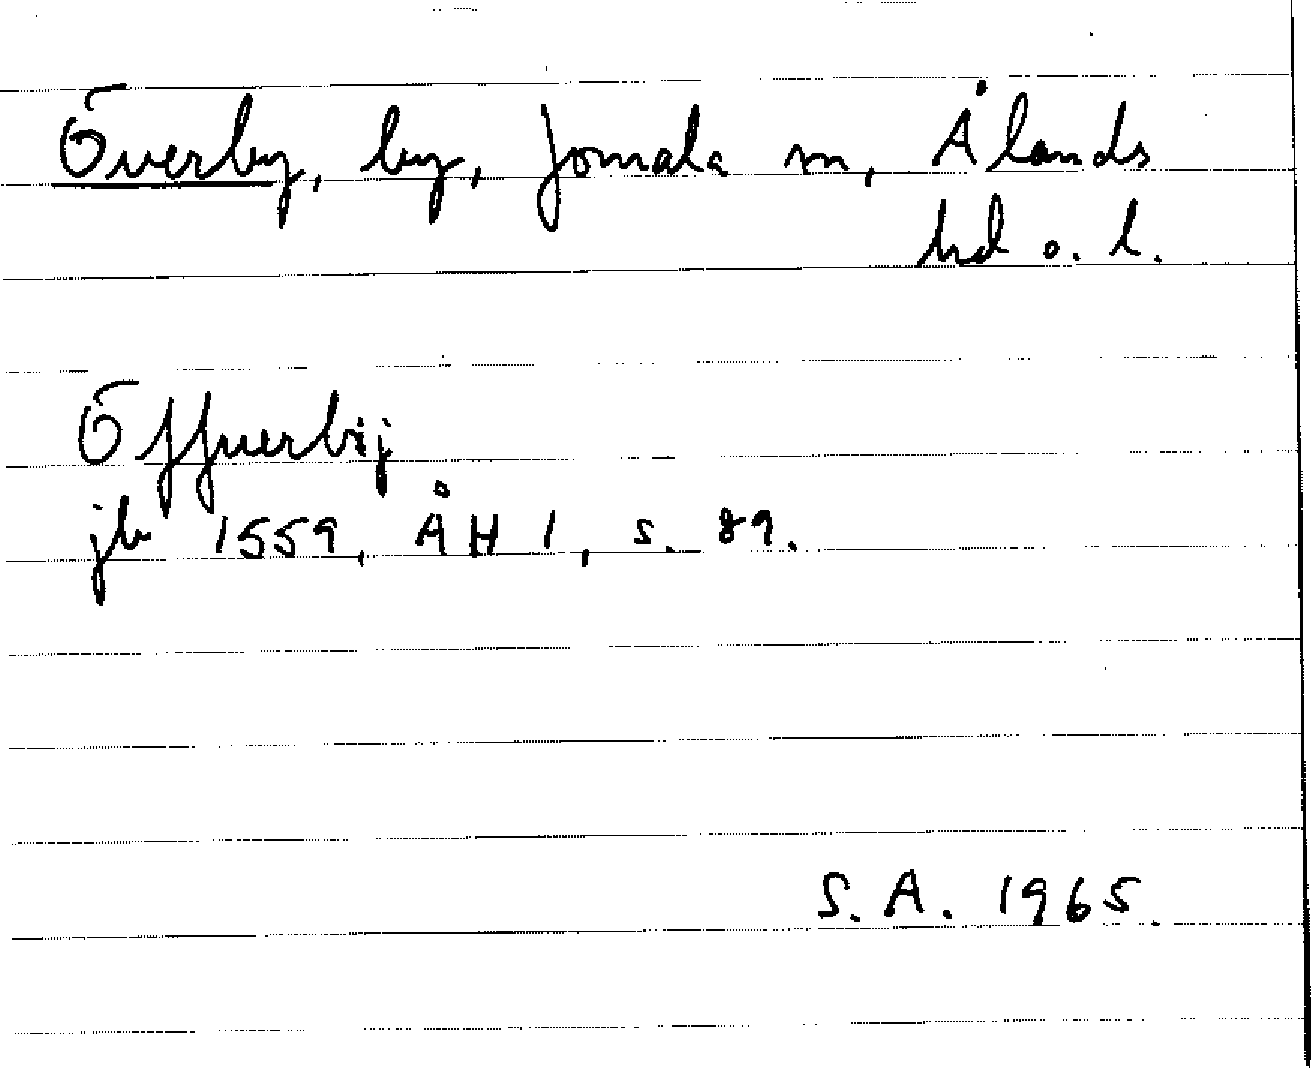 Överby, by, Jomala sn, Ålands
hd o. l.
Öffuerbij
jb 1559, ÅH 1, s. 89.
S. A. 1965.